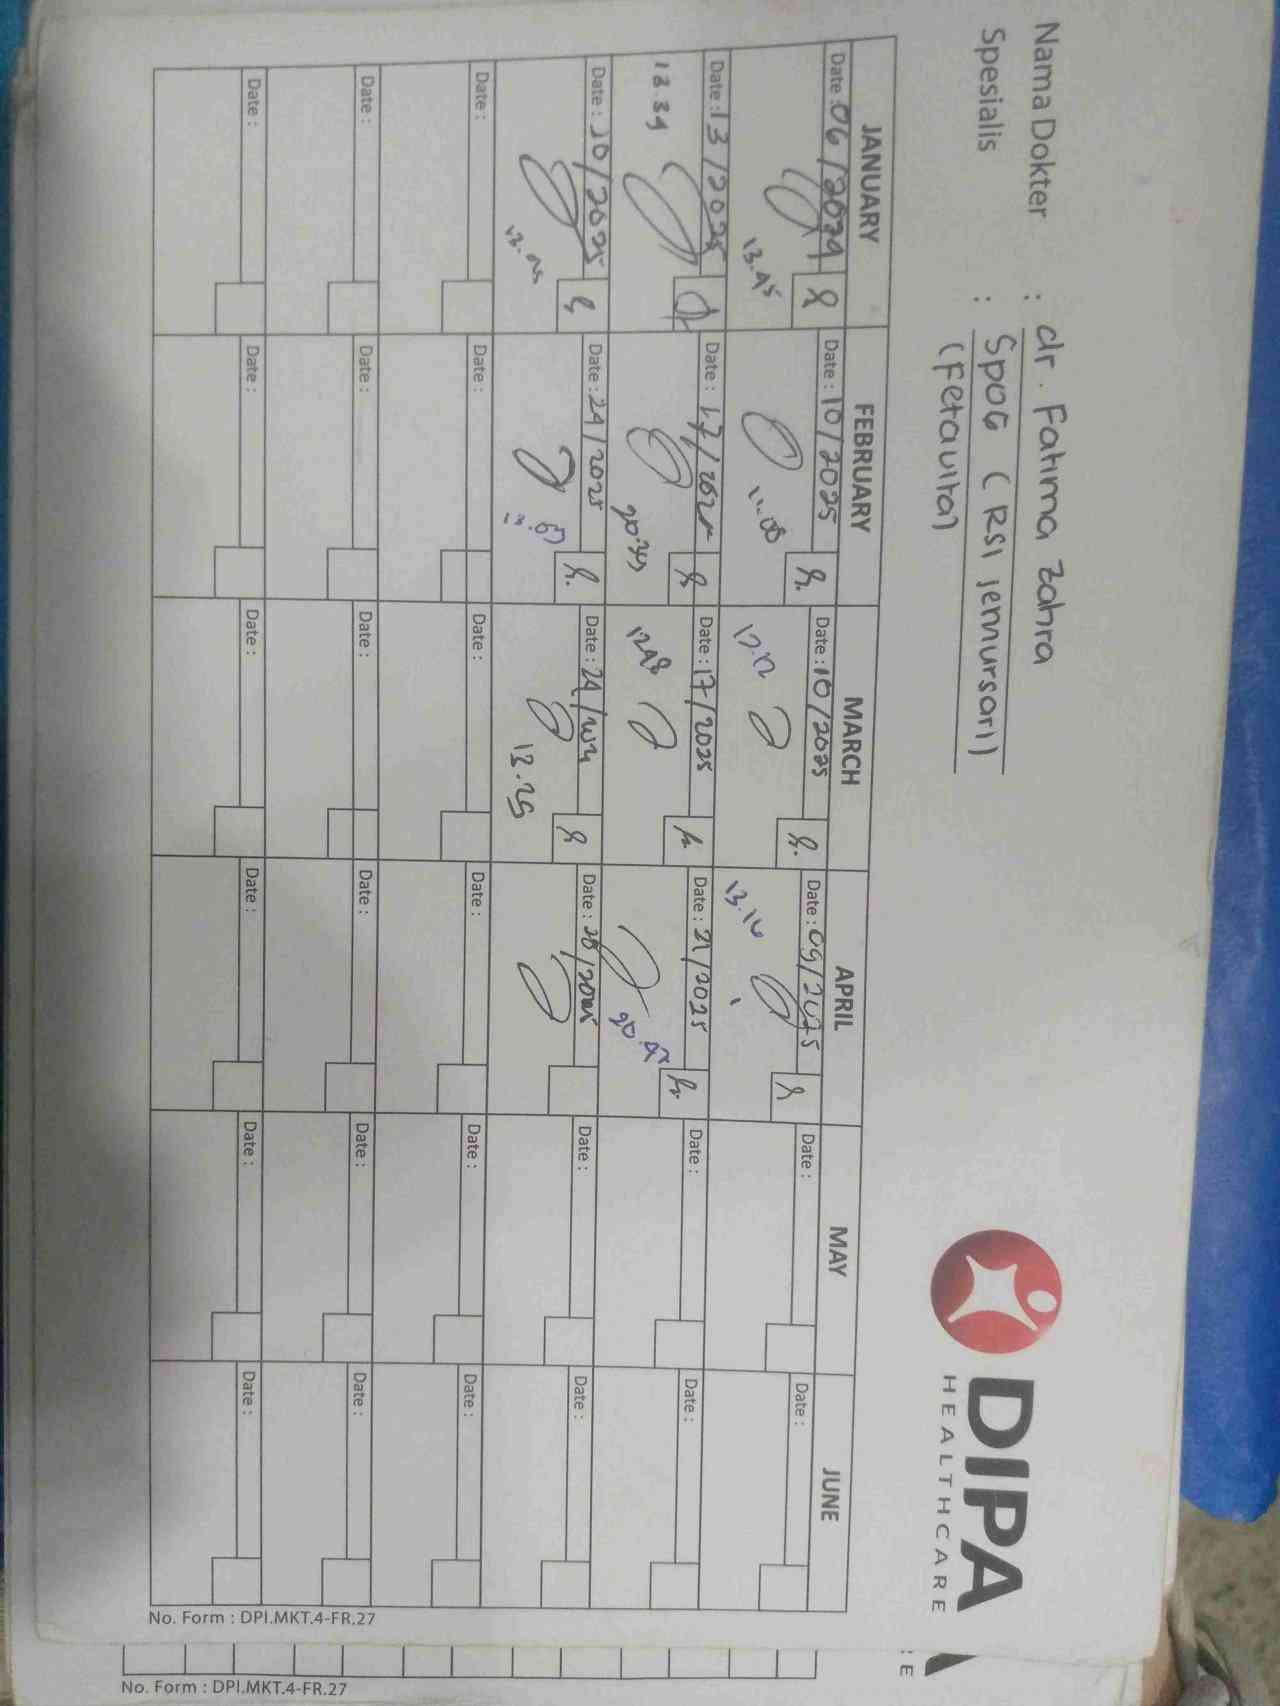 Nama Dokter : dr. Fatima Zahra
Spesialis : SpOG (RSI Jemursari)
(Fetavita)
DIPA
HEALTHCARE
JANUARY FEBRUARY MARCH APRIL MAY JUNE
Date : 06/2024 Date : 10/2025 Date : 10/2025 Date : 09/2025 Date : Date :
13.45 11.08 13.16
Date : 13/2025 Date : 17/2025 Date : 17/2025 Date : 21/2025 Date : Date :
13.39 20.39 1248 20.42
Date : 20/2025 Date : 24/2025 Date : 24/2024 Date : 28/2025 Date : Date :
13.25
Date : Date : Date : Date : Date : Date :
Date : Date : Date : Date : Date : Date :
Date : Date : Date : Date : Date : Date :
No. Form : DPI.MKT.4-FR.27
No. Form : DPI.MKT.4-FR.27